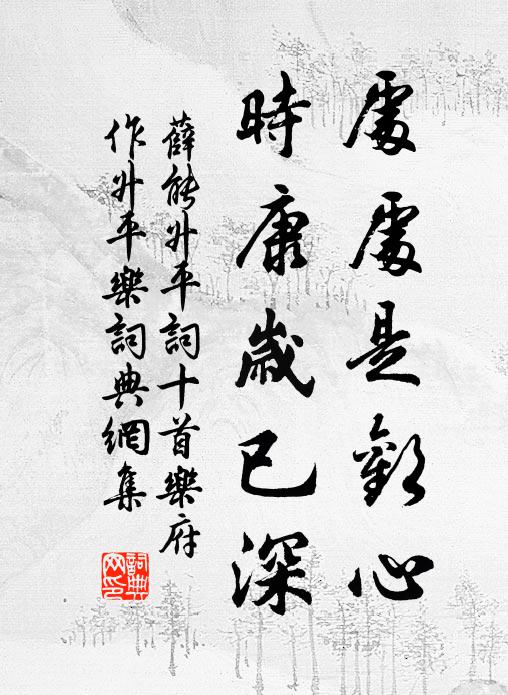 處處是歡心
時康歲已深
薛能升平詞十首樂府
作升平樂詞典網集
詞典
网印